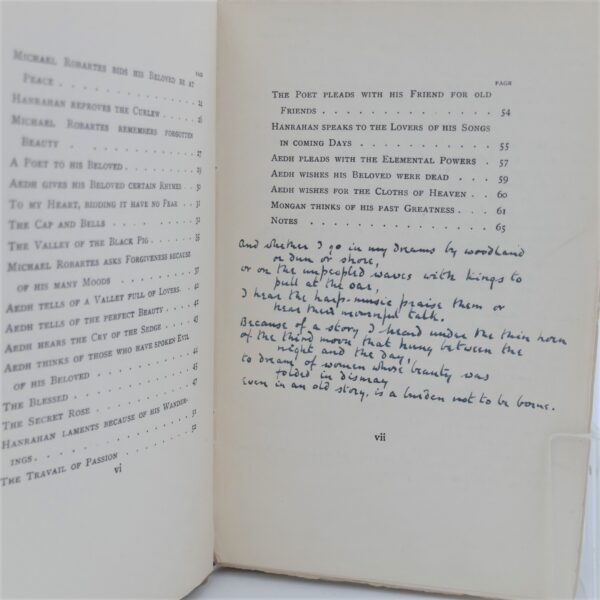 MICHAEL ROBARTES BIDS HIS BELOVED BE AT
PEACE . . . . . . . . . 24
HANRAHAN REPROVES THE CURLEW . . . 26
MICHAEL ROBARTES REMEMBERS FORGOTTEN
BEAUTY . . . . . . . . . 27
A POET TO HIS BELOVED . . . . . 29
AEDH GIVES HIS BELOVED CERTAIN RHYMES . 30
TO MY HEART, BIDDING IT HAVE NO FEAR . .
THE CAP AND BELLS . . . . . . 32
THE VALLEY OF THE BLACK PIG . . . . 35
MICHAEL ROBARTES ASKS FORGIVENESS BECAUSE
OF HIS MANY MOODS . . . . . . 37
AEDH TELLS OF A VALLEY FULL OF LOVERS.
AEDH TELLS OF THE PERFECT BEAUTY . .
AEDH HEARS THE CRY OF THE SEDGE . . .
AEDH THINKS OF THOSE WHO HAVE SPOKEN EVIL
OF HIS BELOVED . . . . . . . 44
THE BLESSED . . . . . . . .
THE SECRET ROSE . . . . . . . 47
HANRAHAN LAMENTS BECAUSE OF HIS WANDER-
INGS. . . . . . . . . . 51
THE TRAVAIL OF PASSION . . . . . 52
vi
PAGE
THE POET PLEADS WITH HIS FRIEND FOR OLD
FRIENDS . . . . . . . . . . . 54
HANRAHAN SPEAKS TO THE LOVERS OF HIS SONGS
IN COMING DAYS . . . . . . . . 55
AEDH PLEADS WITH THE ELEMENTAL POWERS . 57
AEDH WISHES HIS BELOVED WERE DEAD . . . 59
AEDH WISHES FOR THE CLOTHS OF HEAVEN . . 60
MONGAN THINKS OF HIS PAST GREATNESS . . . 61
NOTES . . . . . . . . . . . . 65
And whether I go in my dreams by woodland
or dun or shore,
or on the unpeopled waves with kings to
pull at the oar,
I hear the harp-music praise them or
hear their mournful talk.
Because of a story I heard under the thin horn
of the third moon that hung between the
night and the day,
to dream of women whose beauty was
folded in dismay
Even in an old story, is a burden not to be borne.
vii